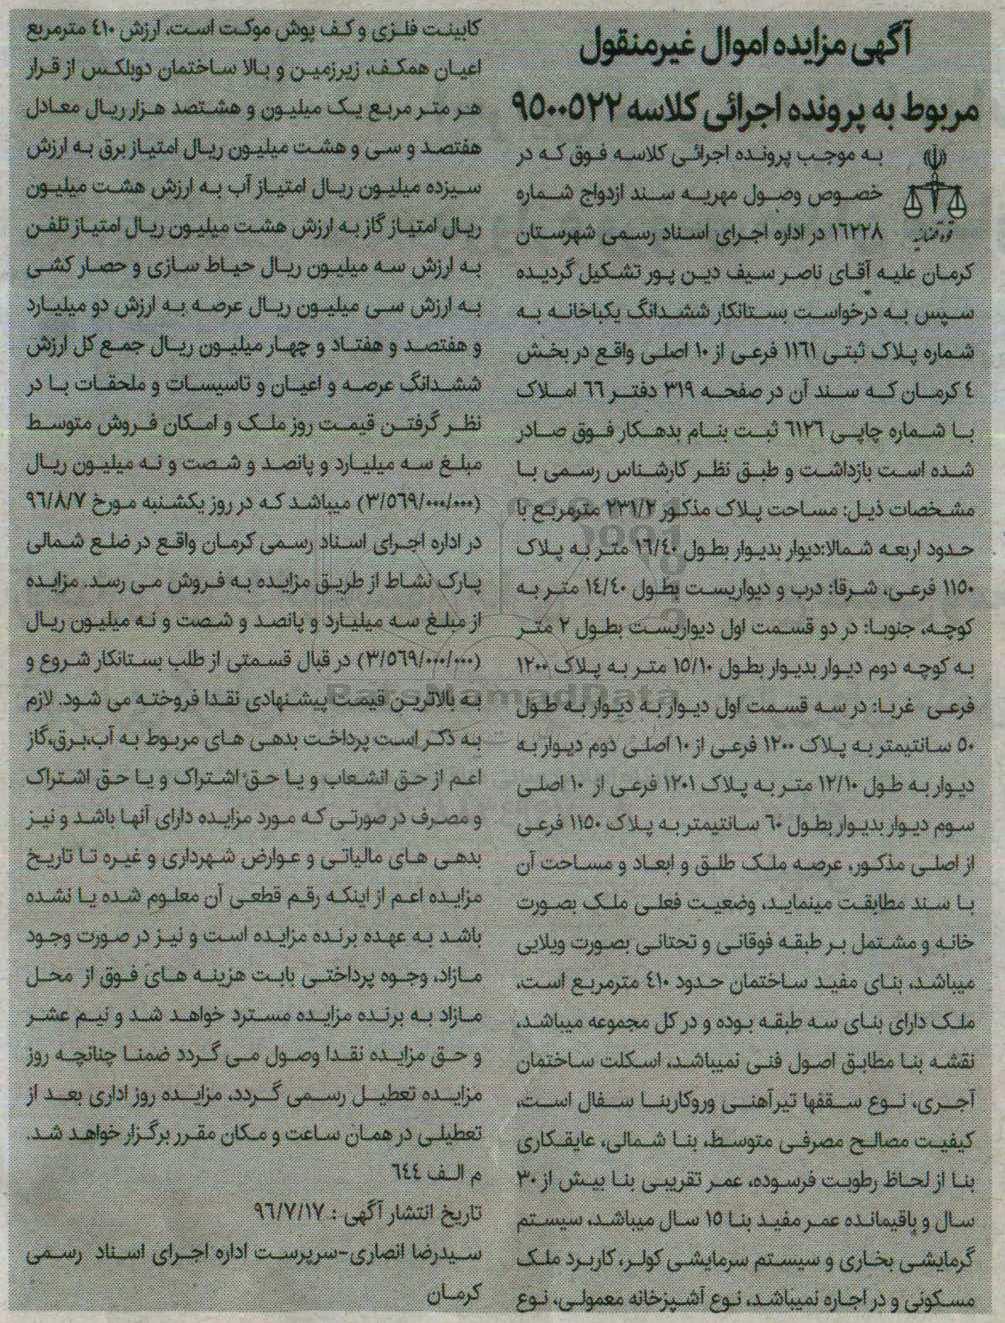 آگهی مزایده اموال غیرمنقول
مربوط به پرونده اجرائی کلاسه ۹۵۰۰۵۲۲
به موجب پرونده اجرائی کلاسه فوق که در
خصوص وصول مهریه سند ازدواج شماره
۱۶۲۲۸ در اداره اجرای اسناد رسمی شهرستان
کرمان علیه آقای ناصر سیف دین پور تشکیل گردیده
سپس به درخواست بستانکار ششدانگ یکباخانه به
شماره پلاک ثبتی ۱۱۶۱ فرعی از ۱۰ اصلی واقع در بخش
۴ کرمان که سند آن در صفحه ۳۱۹ دفتر ۶۶ املاک
با شماره چاپی ۶۱۲۶ ثبت بنام بدهکار فوق صادر
شده است بازداشت و طبق نظر کارشناس رسمی با
مشخصات ذیل: مساحت پلاک مذکور ۲۳۱/۲ مترمربع با
حدود اربعه شمالا:دیوار بدیوار بطول ۱۶/۴۰ متر به پلاک
۱۱۵۰ فرعی، شرقا: درب و دیواریست بطول ۱۴/۴۰ متر به
کوچه، جنوبا: در دو قسمت اول دیواریست بطول ۲ متر
به کوچه دوم دیوار بدیوار بطول ۱۵/۱۰ متر به پلاک ۱۲۰۰
فرعی غربا: در سه قسمت اول دیوار به دیوار به طول
۵۰ سانتیمتر به پلاک ۱۲۰۰ فرعی از ۱۰ اصلی دوم دیوار به
دیوار به طول ۱۲/۱۰ متر به پلاک ۱۲۰۱ فرعی از ۱۰ اصلی
سوم دیوار بدیوار بطول ۶۰ سانتیمتر به پلاک ۱۱۵۰ فرعی
از اصلی مذکور، عرصه ملک طلق و ابعاد و مساحت آن
با سند مطابقت مینماید، وضعیت فعلی ملک بصورت
خانه و مشتمل بر طبقه فوقانی و تحتانی بصورت ویلایی
میباشد، بنای مفید ساختمان حدود ۴۱۰ مترمربع است،
ملک دارای بنای سه طبقه بوده و در کل مجموعه میباشد،
نقشه بنا مطابق اصول فنی نمیباشد، اسکلت ساختمان
آجری، نوع سقفها تیرآهنی وروکاربنا سفال است،
کیفیت مصالح مصرفی متوسط، بنا شمالی، عایقکاری
بنا از لحاظ رطوبت فرسوده، عمر تقریبی بنا بیش از ۳۰
سال و باقیمانده عمر مفید بنا ۱۵ سال میباشد، سیستم
گرمایشی بخاری و سیستم سرمایشی کولر، کاربرد ملک
مسکونی و در اجاره نمیباشد، نوع آشپزخانه معمولی، نوع
کابینت فلزی و کف پوش موکت است، ارزش ۴۱۰ مترمربع
اعیان همکف، زیرزمین و بالا ساختمان دوبلکس از قرار
هر متر مربع یک میلیون و هشتصد هزار ریال معادل
هفتصد و سی و هشت میلیون ریال امتیاز برق به ارزش
سیزده میلیون ریال امتیاز آب به ارزش هشت میلیون
ریال امتیاز گاز به ارزش هشت میلیون ریال امتیاز تلفن
به ارزش سه میلیون ریال حیاط سازی و حصار کشی
به ارزش سی میلیون ریال عرصه به ارزش دو میلیارد
و هفتصد و هفتاد و چهار میلیون ریال جمع کل ارزش
ششدانگ عرصه و اعیان و تاسیسات و ملحقات با در
نظر گرفتن قیمت روز ملک و امکان فروش متوسط
مبلغ سه میلیارد و پانصد و شصت و نه میلیون ریال
(۳/۵۶۹/۰۰۰/۰۰۰) میباشد که در روز یکشنبه مورخ ۹۶/۸/۷
در اداره اجرای اسناد رسمی کرمان واقع در ضلع شمالی
پارک نشاط از طریق مزایده به فروش می رسد. مزایده
از مبلغ سه میلیارد و پانصد و شصت و نه میلیون ریال
(۳/۵۶۹/۰۰۰/۰۰۰) در قبال قسمتی از طلب بستانکار شروع و
به بالاترین قیمت پیشنهادی نقدا فروخته می شود. لازم
به ذکر است پرداخت بدهی های مربوط به آب،برق،گاز
اعم از حق انشعاب و یا حق اشتراک و یا حق اشتراک
و مصرف در صورتی که مورد مزایده دارای آنها باشد و نیز
بدهی های مالیاتی و عوارض شهرداری و غیره تا تاریخ
مزایده اعم از اینکه رقم قطعی آن معلوم شده یا نشده
باشد به عهده برنده مزایده است و نیز در صورت وجود
مازاد، وجوه پرداختی بابت هزینه های فوق از محل
مازاد به برنده مزایده مسترد خواهد شد و نیم عشر
و حق مزایده نقدا وصول می گردد ضمنا چنانچه روز
مزایده تعطیل رسمی گردد، مزایده روز اداری بعد از
تعطیلی در همان ساعت و مکان مقرر برگزار خواهد شد.
م الف ۶۴۴
تاریخ انتشار آگهی : ۹۶/۷/۱۷
سیدرضا انصاری-سرپرست اداره اجرای اسناد رسمی
کرمان
ParsNamadData